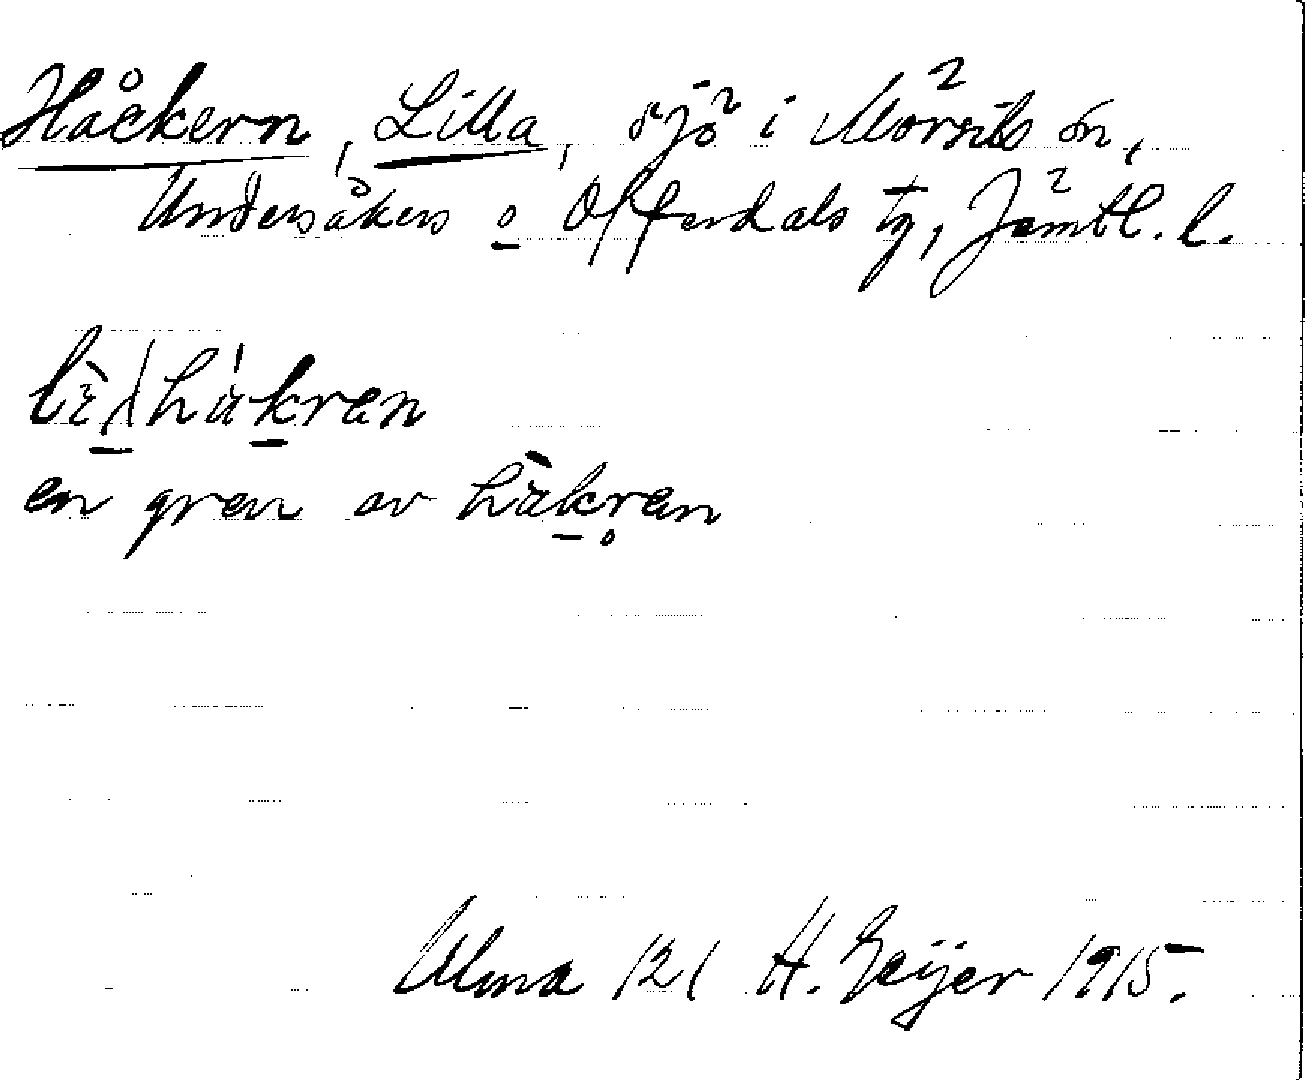 Håckern, Lilla, sjö i Mörsils sn,
Undersåkers o Offerdals tg, Jämtl. l.
en gren av håkran
Ulma 121 H. Geijer 1915.